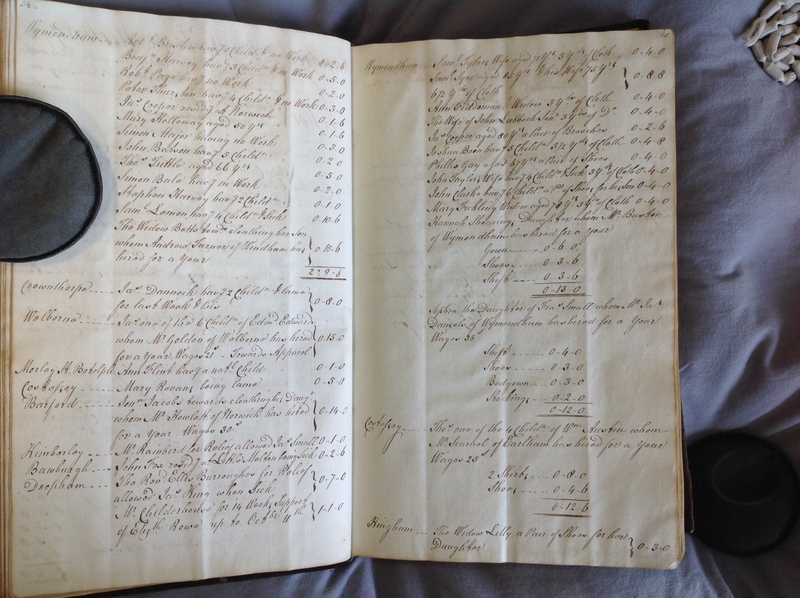 34
Wymondham
Robt. Bushen hav: 7 Childn. & no Work 0-2-6
Henry hav: 5 Childn. & no Work 0-5-0
Robt. Page hav: no Work 0-2-0
hav: 4 Childn. & no Work 0-3-0
Jno. Cooper resid: at Norwich 0-1-6
Mary Holloway aged 50 yrs 0-1-6
Simon Major having no Work 0-3-0
John Batson hav: 5 Childn. 0-2-0
Thos. Tuttle aged 66 yrs 0-5-0
Simon Bale hav: no Work 0-2-0
Stephen Harvey hav: 2 Childn. 0-1-0
Saml. Lemon hav: 4 Childn. Sick 0-10-6
The Widow Botts towds. Cloathing her Son
whom Andrew Turner of Windham has
hired for a Year 0-10-6
2-9-6
Crownthorpe Jas. Dannock hav: 2 Childn. & lame
for last Week & this 0-8-0
Welborne Jno. one of the 6 Childn. of Edmd. Edwards
whom Mr. Goldon of Welborne has hired
for a Year Wages 21s. Towards Apparel 0-15-0
Morley St. Botolph Ann Flint hav: a natl. Child 0-1-0
Costessy Mary Rouan, being lame 0-5-0
Barford Jonn. Jacobs towards cloathing his Daugr.
whom Mr. Howlett of Norwich has hired
for a Year Wages 30s. 0-14-0
Kimberley Mr. Rambird for Relief allowed Jno. Small 0-1-0
Bawburgh John Fox resid: at Little Melton being Sick 0-2-6
Deopham The Revd. Ellis Burroughes for Relief
allowed Jno. King when Sick 0-7-0
Mr. Childerhouse for 14 Weeks Support
of Elizth. Rowe up to Octr. 4th 1-1-0
Wymondham Saml. Tyler's Wife aged 71 yrs 3 yds. of Cloth 0-4-0
Saml. aged 85 yrs. & his Wife 75 yrs.
6½ yds. of Cloth 0-8-8
Ann Feldeman Widow 3 yds. of Cloth 0-4-0
The Wife of John Lubbock Junr. 3 yds. of Do. 0-4-0
Jno. Cooper aged 80 yrs. a Pair of Breeches 0-2-6
Joshua Bean hav: 5 Childn. 3½ yds. of Cloth 0-4-8
Phillis Gay a past 67 yrs. a Pair of Shoes 0-4-0
John Taylor's Wife hav: 4 Childn. & Sick 3 yds. of Cloth 0-4-0
John Clarke hav: 6 Childn. a Pr. of Shoes for his Son 0-4-0
Mary Fickling Widow aged 70 yrs. 3 yds. of Cloth 0-4-0
Hannah Manning's Daughter whom Mr. Bushen
of Wymondham has hired for a Year
Gown 0-6-0
Shoes 0-3-6
Shift 0-3-6
0-13-0
the Daughter of Fras. Small whom Mr. Jno.
Daniels of Wymondham has hired for a Year
Wages 35s.
Shift 0-4-0
Shoes 0-3-0
Bedgown 0-3-0
Stockings 0-2-0
0-12-0
Costessy Thos. one of the 4 Childn. of Wm. Austin whom
Mr. Searhol of Earlham has hired for a Year
Wages 25s.
2 Shirts 0-8-0
Shoes 0-4-6
0-12-6
Hingham The Widow Lilly a Pair of Shoes for her
Daughter 0-3-0